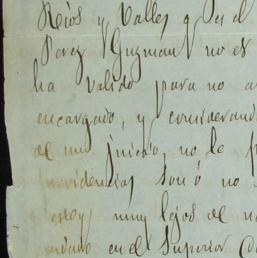 Ríos y Valles q Per el
Perez Guzman no es
ha valido para no a
encargado, y considerand
de un juicio, no le p
providencias sonó no
y estoy muy lejos de n
en el Superior Co